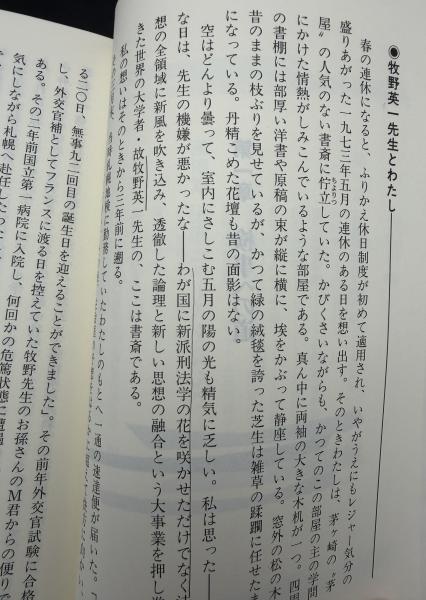 ◉牧野英一先生とわたし
春の連休になると、ふりかえ休日制度が初めて適用され、いやがうえにもレジャー気分の
盛りあがった一九七三年五月の連休のある日を想い出す。そのときわたしは、茅ヶ崎の〝茅
屋〟の人気のない書斎に佇立していた。かびくさいながらも、かつてのこの部屋の主の学問
にかけた情熱がしみこんでいるような部屋である。真ん中に両袖の大きな木机が一つ。四周
の書棚には部厚い洋書や原稿の束が縦に横に、埃をかぶって静座している。窓外の松の木
昔のままの枝ぶりを見せているが、かつて緑の絨毯を誇った芝生は雑草の蹂躙に任せたま
になっている。丹精こめた花壇も昔の面影はない。
空はどんより曇って、室内にさしこむ五月の陽の光も精気に乏しい。私は思った――
な日は、先生の機嫌が悪かったな――わが国に新派刑法学の花を咲かせただけでなく法
想の全領域に新風を吹き込み、透徹した論理と新しい思想の融合という大事業を押し進
きた世界の大学者・故牧野英一先生の、ここは書斎である。
私の想いはそのときから三年前に遡る。
札幌地検に勤務していたわたしのもとへ一通の速達便が届いた。
る二〇日、無事九二回目の誕生日を迎えることができました」。その前年外交官試験に合格
し、外交官補としてフランスに渡る日を控えていた牧野先生のお孫さんのM君からの便りで
ある。その二年前国立第一病院に入院し、何回かの危篤状態に遭遇
気にしながら札幌へ赴任した